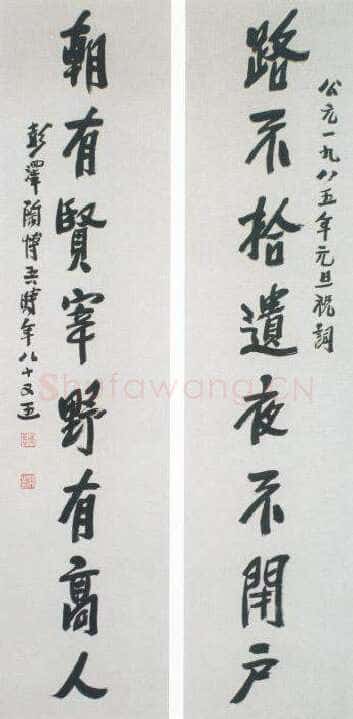 公元一九八五年元旦祝詞
路不拾遺夜不閉户
朝有賢宰野有高人
彭澤陶博吾時年八十又五
Shufawang.CN